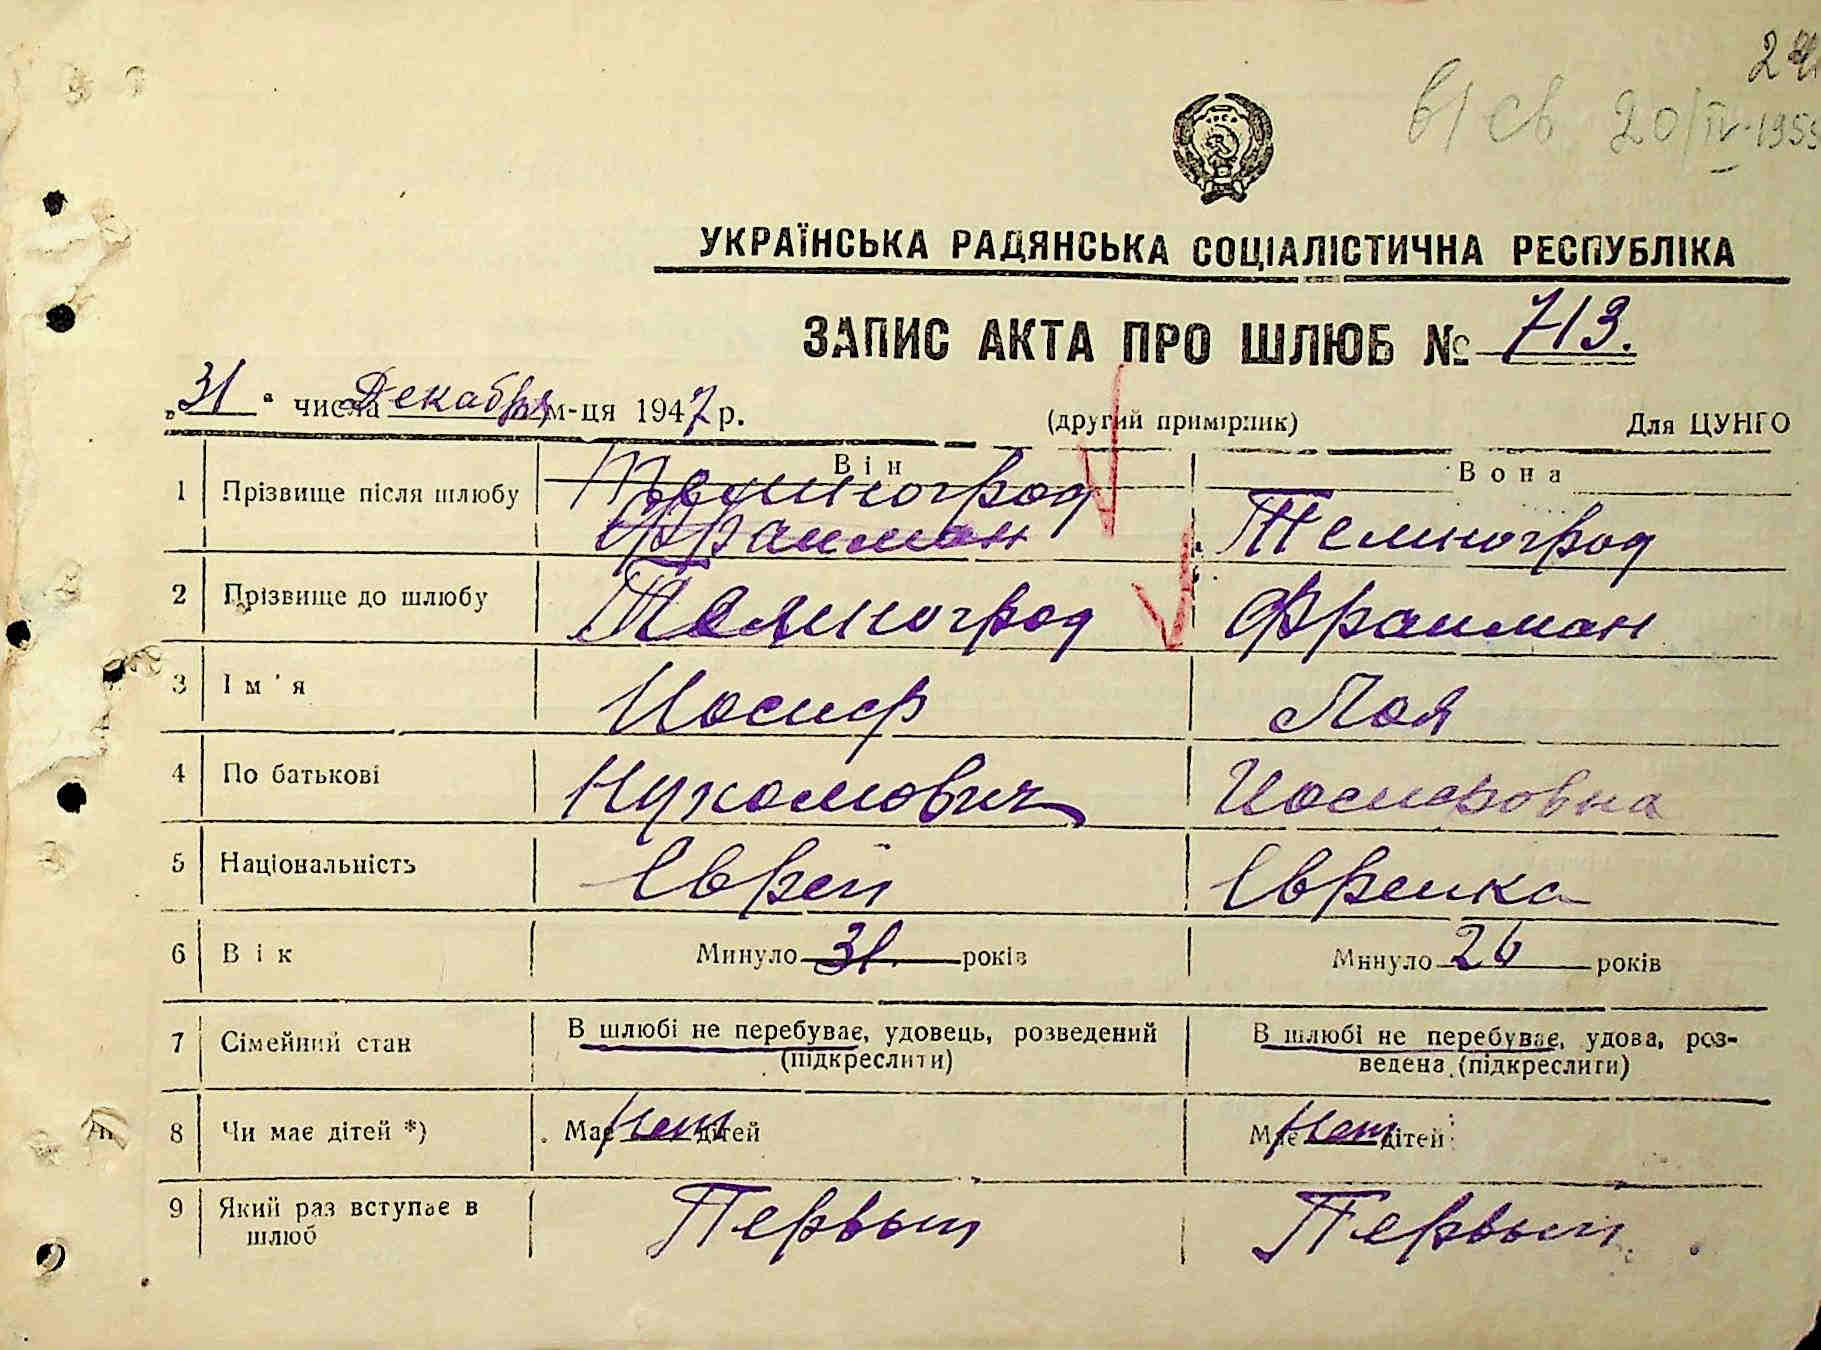 24
в/св 20/IV-1955
УКРАЇНСЬКА РАДЯНСЬКА СОЦІАЛІСТИЧНА РЕСПУБЛІКА
ЗАПИС АКТА ПРО ШЛЮБ № 713.
„31“ числа Декабря м-ця 1947 р. (другий примірник) Для ЦУНГО
Він Вона
1 Прізвище після шлюбу Телиноград Телиноград
Фраиман
2 Прізвище до шлюбу Телиноград Фраиман
3 Ім'я Иосиф Лоя
4 По батькові Нухомович Иосифовна
5 Національність Еврей Евреика
6 Вік Минуло 31. років Минуло 26 років
7 Сімейний стан В шлюбі не перебуває, удовець, розведений (підкреслити) В шлюбі не перебуває, удова, роз-
ведена (підкреслити)
8 Чи має дітей *) Має Нет дітей Має Нет дітей
9 Який раз вступає в Первый Первый
шлюб